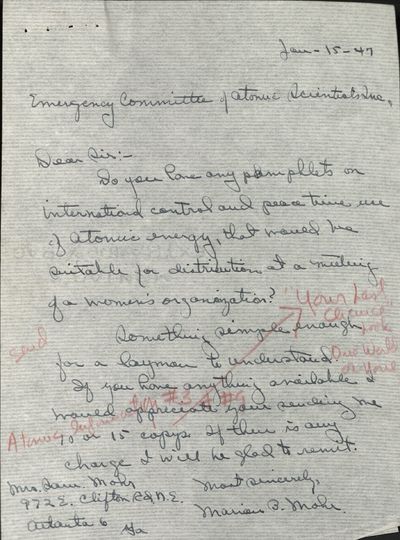 Jan-15-47
Emergency Committee of Atomic Scientists Inc.,
Dear Sir:-
Do you have any pamphlets on
international control and peace time use
of atomic energy, that would be
suitable for distribution at a meeting
of a women's organization?
"Your Last
Chance"
Something simple enough
book
send
for a layman to understand.
One World
or None
If you have anything available I
would appreciate your sending me
Atomic Information #3 & #9
10 or 15 copys. If there is any
charge I will be glad to remit.
Mrs. Sam. Mohr
Most sincerely,
972 E. Clifton Rd. N.E.
Marian B. Mohr.
Atlanta 6
Ga